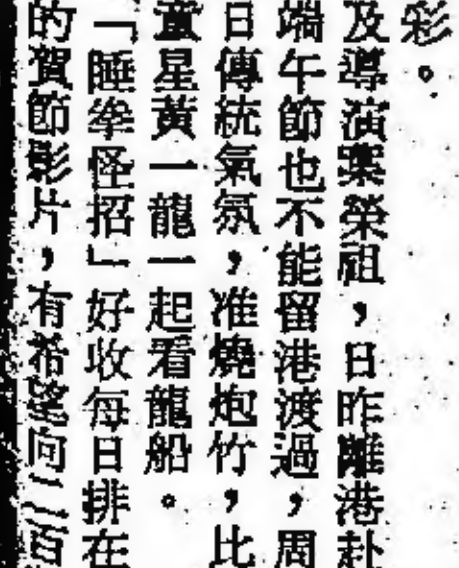 彩。
及導演葉榮祖，日昨離港赴
端午節也不能留港渡過，周
日傳統氣氛，准燒炮竹，比
童星黃一龍一起看龍船。
「睡拳怪招」好收每日排在
的賀節影片，有希望向二百